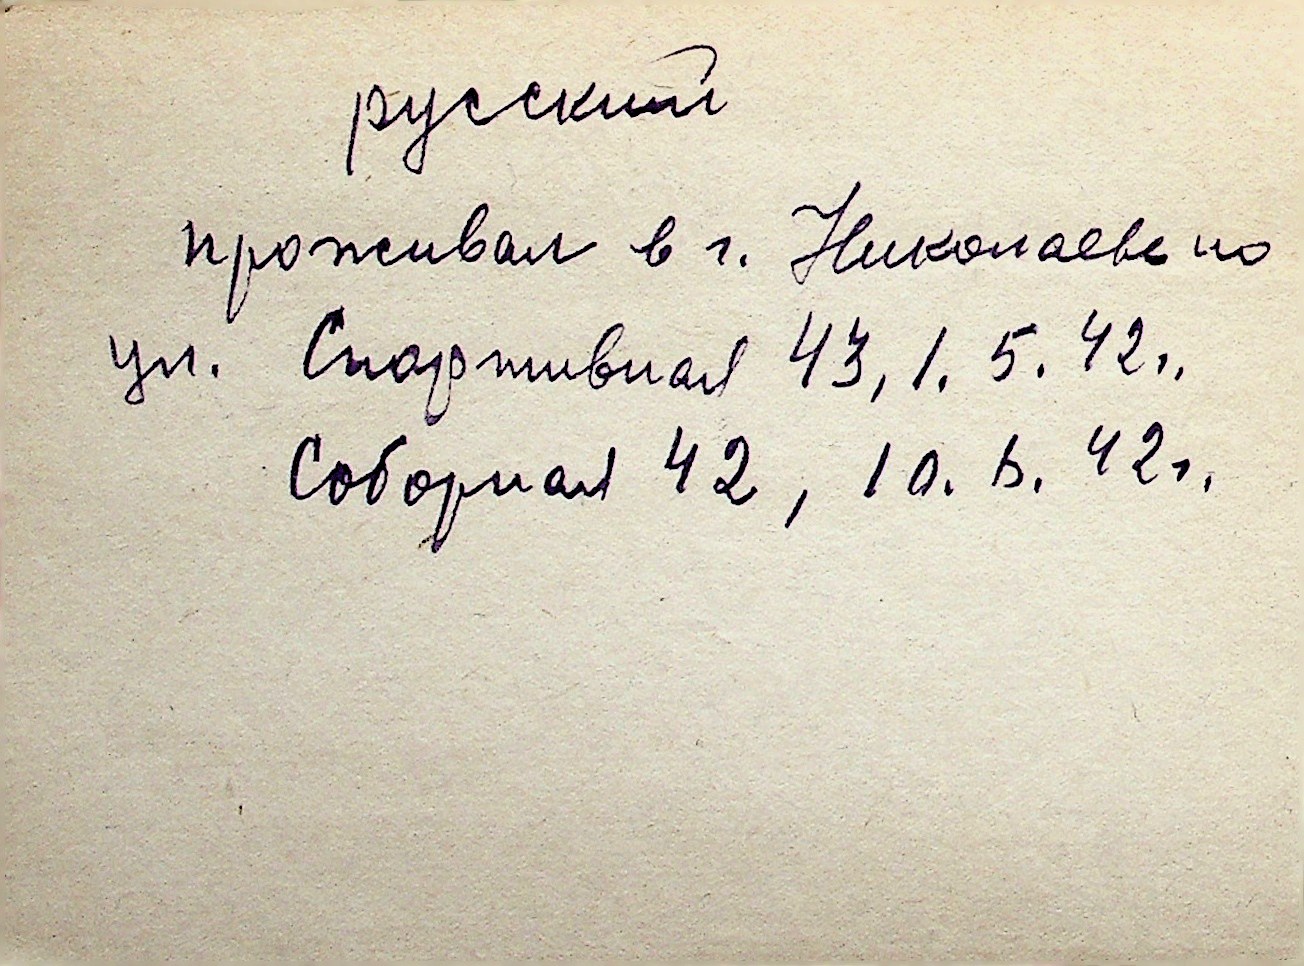 русский
проживал в г. Николаеве по
ул. Спортивная 43, 1. 5. 42г.,
Соборная 42, 10. 6. 42г.